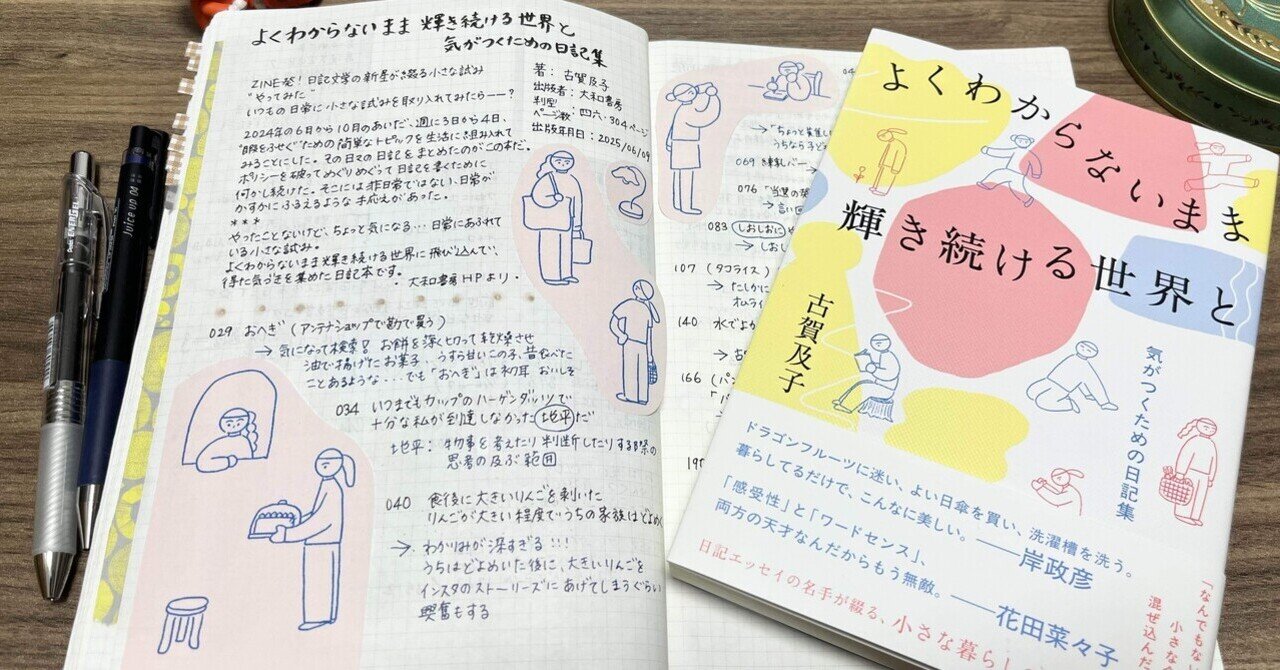 よくわからないまま 輝き続ける世界と
気がつくための日記集
ZINE発!日記文学の新星が綴る小さな試み
"やってみた"
いつもの日常に小さな試みを取り入れてみたら——?
2024年の6月から10月のあいだ、週に3日から4日、
"暇をふせぐ"ための簡単なトピックを生活に組み入れて
みることにした。その日々の日記をまとめたのがこの本だ。
ポリシーを破ってめぐりめぐって日記を書くために
何かし続けた。そこには非日常ではない、日常が
かすかにふるえるような手応えがあった。
***
やったことないけど、ちょっと気になる…日常にあふれて
いる小さな試み。
よくわからないまま輝き続ける世界に飛び込んで、
得た気づきを集めた日記本です。 大和書房HPより.
著:古賀及子
出版者:大和書房
判型:四六
ページ数:304ページ
出版年月日:2025/06/09
029 おへぎ(アンテナショップで勘で買う)
→ 気になって検索 お餅を深く切って乾燥させ
油で揚げたお菓子、うすら甘いこの子、昔食べた
ことあるような...でも「おへぎ」は初耳 おいしそ
034 いつまでもカップのハーゲンダッツで
十分な私が到達しなかった地平だ
地平:物事を考えたり判断したりする際の
思考の及ぶ範囲
040 食後に大きいりんごを剥いた
りんごが大きい程度でうちの家族はどよめく
→ わかりみが深すぎる!!!
うちはどよめいた後に、大きいりんごを
インスタのストーリーズにあげてしまうぐらい
興奮もする
→「ちょっと
うちなら子ど
069
076
→ 言い回
083 しおしおに
→ しおし
107 (タコライス)
→ たしかに
オムライ
140 水でよか
166
EnerGel
Juice up 04
よくわからないまま
輝き続ける世界と
気がつくための日記集
古賀及子
ドラゴンフルーツに迷い、よい日傘を買い、洗濯槽を洗う。
暮らしてるだけで、こんなに美しい。——岸政彦
「感受性」と「ワードセンス」、
両方の天才なんだからもう無敵。——花田菜々子
日記エッセイの名手が綴る、小さな暮らし
「なんでもな
小さな
混ぜ込んだ